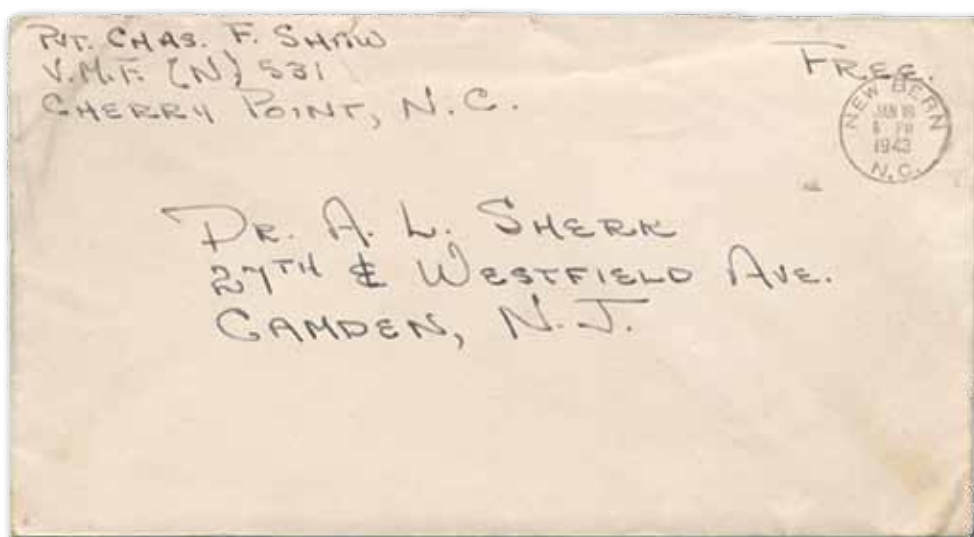 PVT. CHAS. F. SHAW
V.M.F. (N) 531
CHERRY POINT, N.C.
FREE.
NEW BERN
JAN 18
PM
1943
N.C.
DR. A. L. SHERK
27TH & WESTFIELD AVE.
CAMDEN, N.J.